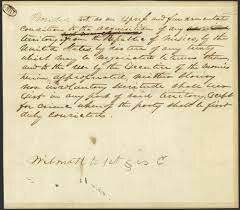 Provided that as an express and fundamental
condition to the acquisition of any
territory from the Republic of Mexico, by the
United States, by virtue of any treaty
which may be negotiated between them,
and to the use by the Executive of the moneys
herein appropriated, neither slavery
nor involuntary servitude shall ever
exist in any part of said territory, except
for crime whereof the party shall be first
duly convicted.